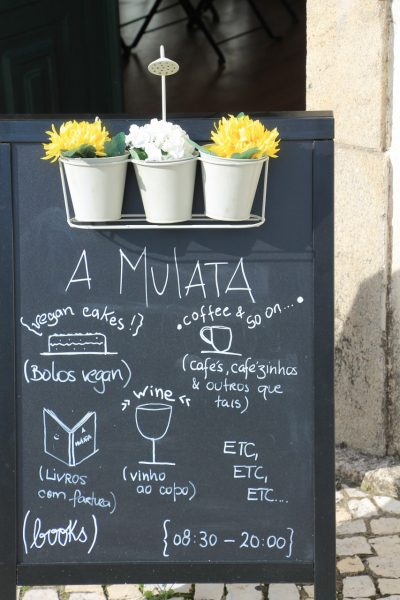 A MULATA
{vegan cakes!}
(Bolos vegan)
• coffee & so on...•
(cafés, cafézinhos
& outros que
tais)
(Livros
com fartura)
(books)
»wine«
(vinho
ao copo)
ETC,
ETC,
ETC....
{08:30 – 20:00}